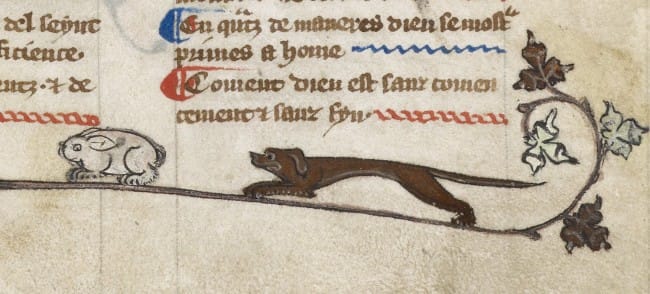 del seynt
ficience.
entz. & de
En qͣntz de maneres dieu se most
primes a home
Coment dieu est sanz comen
cement & sanz fyn.